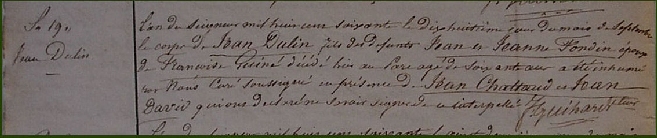 Se 19e
Jean Dulin
L'an du Seigneur mil huit cent soixante le dixhuitième jour du mois de Septembre
le corps de Jean Dulin fils des défunts Jean et Jeanne Fondin époux
de Françoise Guiné décédé hier au Parc agé de soixante ans a été inhumé
par Nous Curé soussigné en présence de Jean Chattaud et Jean
David qui ont déclaré ne savoir signer de ce interpellé
L'an du Seigneur mil huit cent soixante le